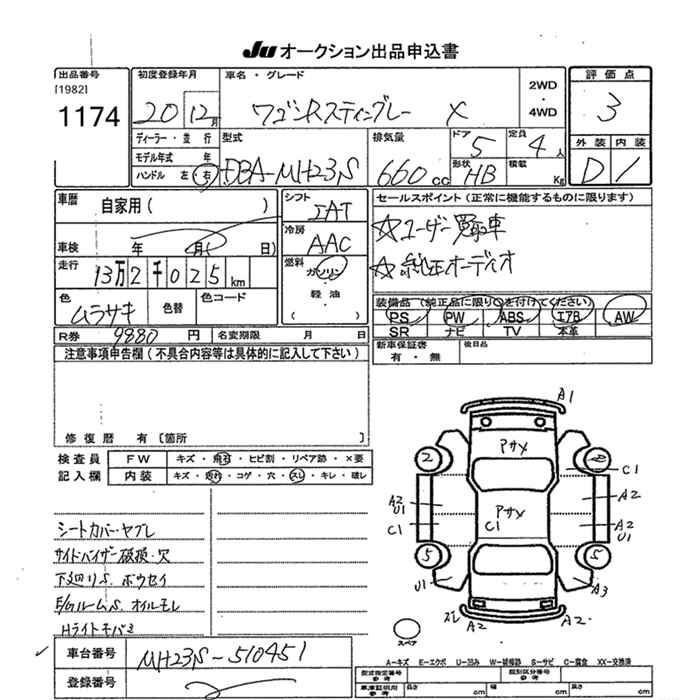 JU オークション出品申込書
出品番号
[1982]
1174
初度登録年月
20 12月
車名・グレード
ワゴンRスティングレー X
2WD
・
4WD
評価点
3
外装 内装
D 1
ディーラー・並行
モデル年式 年
ハンドル 左・右
型式
DBA-MH23S
排気量
660cc
ドア
5
定員
4人
形状
HB
積載
Kg
車歴
自家用( )
車検 年 月( 日)
走行
13万2千025km
色
ムラサキ
色替
色コード
シフト
IAT
冷房
AAC
燃料
ガソリン
・
軽油
・
( )
セールスポイント(正常に機能するものに限ります)
☆ユーザー買取車
☆純正オーディオ
装備品(純正品に限り○を付けてください)
PS PW ABS エアB AW
SR ナビ TV 本革
R券 9880円
名変期限 月 日
新車保証書
有・無
後日品
注意事項申告欄(不具合内容等は具体的に記入して下さい)
修復歴 有 [箇所 ]
検査員
記入欄
FW キズ・飛石・ヒビ割・リペア跡・×要
内装 キズ・汚れ・コゲ・穴・スレ・キレ・破レ
シートカバー・ヤブレ
サイドバイザー破損・穴
下廻りS、ボウセイ
E/GルームS、オイルモレ
Hライトキバミ
車台番号
MH23S-510451
登録番号
A1
Pサメ
2
C1
A2
U1
C1
A2
PサメC1
A2
U1
5
5
U1
A3
スレ
A2
A2
スペア
A-キズ E-エクボ U-凹み W-補修跡 S-サビ C-腐食 XX-交換済
型式指定番号
参考
類別区分番号
参考
車庫証明用
参考
長さ cm
幅 cm
高さ cm